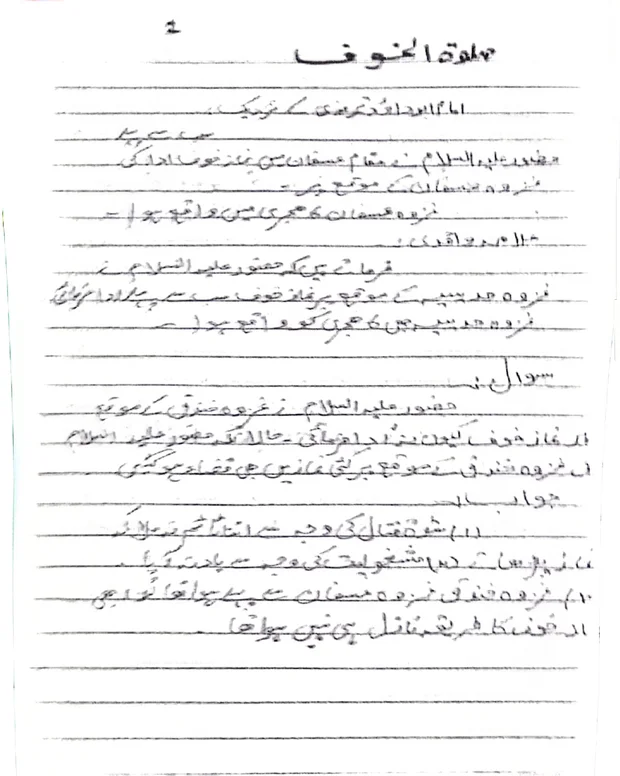 2
صلوة الخوف
امام ابوداؤد ترمذی کے نزدیک:
سب سے پہلے
حضور علیہ السلام نے مقام عسفان میں نماز خوف ادا کی
غزوہ عسفان کے موقع پر۔
غزوہ عسفان ھجری میں واقع ہوا۔
واقدی:
فرماتے ہیں کہ حضور علیہ السلام نے
غزوہ حدیبیہ کے موقع پر نماز خوف سب سے پہلے ادا فرمائی
غزوہ حدیبیہ ھجری کو واقع ہوا۔
سوال:
حضور علیہ السلام نے غزوہ خندق کے موقع
نماز خوف کیوں نہ ادا فرمائی۔ حالانکہ حضور علیہ السلام
غزوہ خندق کے موقع پر کئی نمازیں بھی قضاء ہو گئیں
جواب:
(1) شدۃ قتال کی وجہ سے اتنا ٹائم نہ ملا کہ
نماز پڑھ سکتے (2) مشغولیت کی وجہ سے یاد نہ رہا۔
غزوہ خندق غزوہ عسفان سے پہلے ہوا تھا تو ابھی
خوف کا طریقہ نازل ہی نہیں ہوا تھا